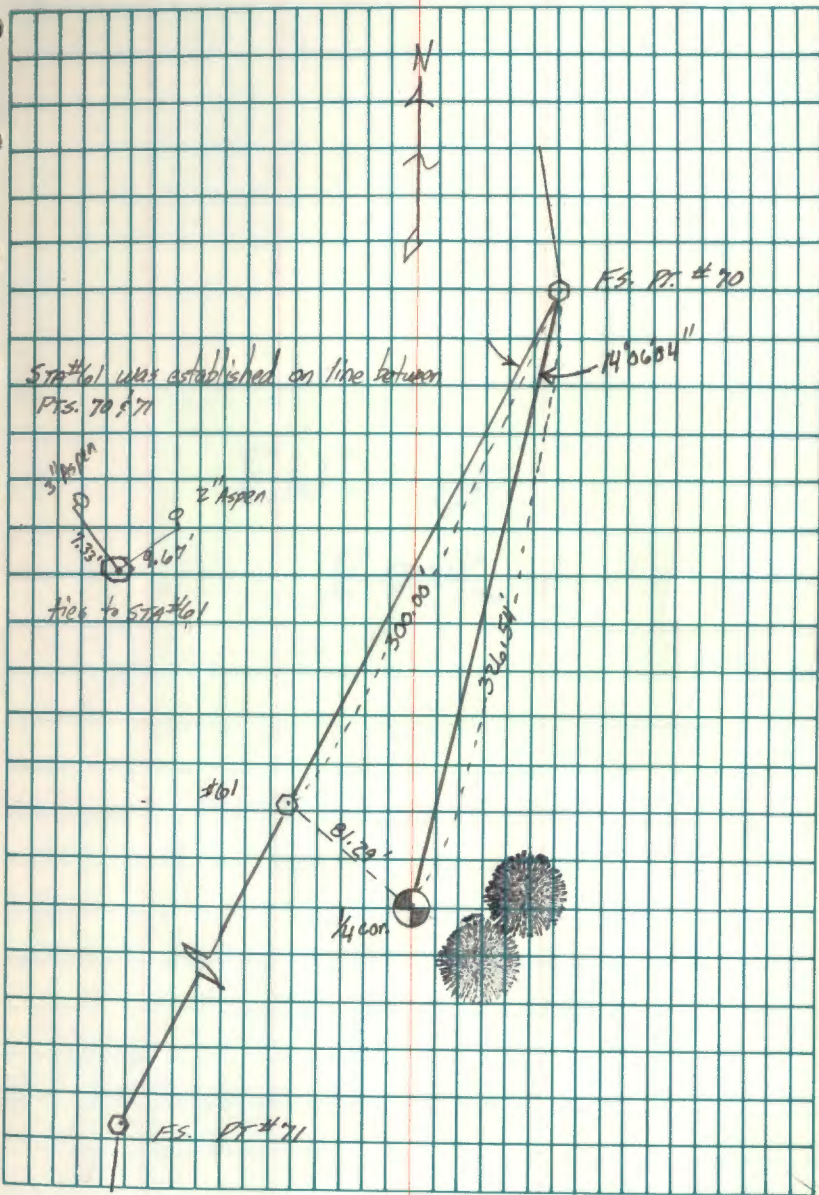 N
F.S. PT. # 70
14°06'04"
STA#61 was established on line between
PTS. 70 & 71
3" Aspen
2" Aspen
7.33'
9.67'
ties to STA#61
300.00'
326.54'
#61
81.29'
1/4 cor.
F.S. PT # 71